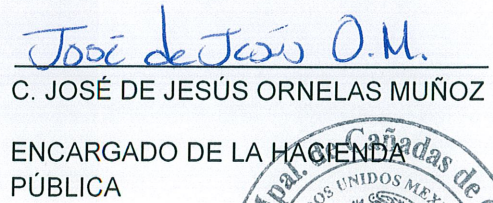 José de Jesús O.M.
C. JOSÉ DE JESÚS ORNELAS MUÑOZ
ENCARGADO DE LA HACIENDA
PÚBLICA
pal. de Cañadas de
OS UNIDOS MEX